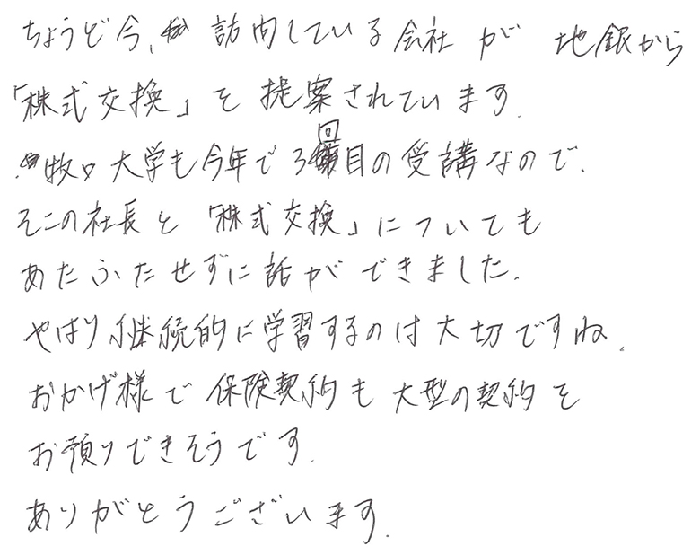 ちょうど今、訪問している会社が 地銀から
「株式交換」を提案されています.
牧口大学も今年で3回目の受講なので.
そこの社長と「株式交換」についても
あたふたせずに話ができました.
やはり継続的に学習するのは大切ですね.
おかげ様で保険契約も大型の契約を
お預りできそうです.
ありがとうございます.